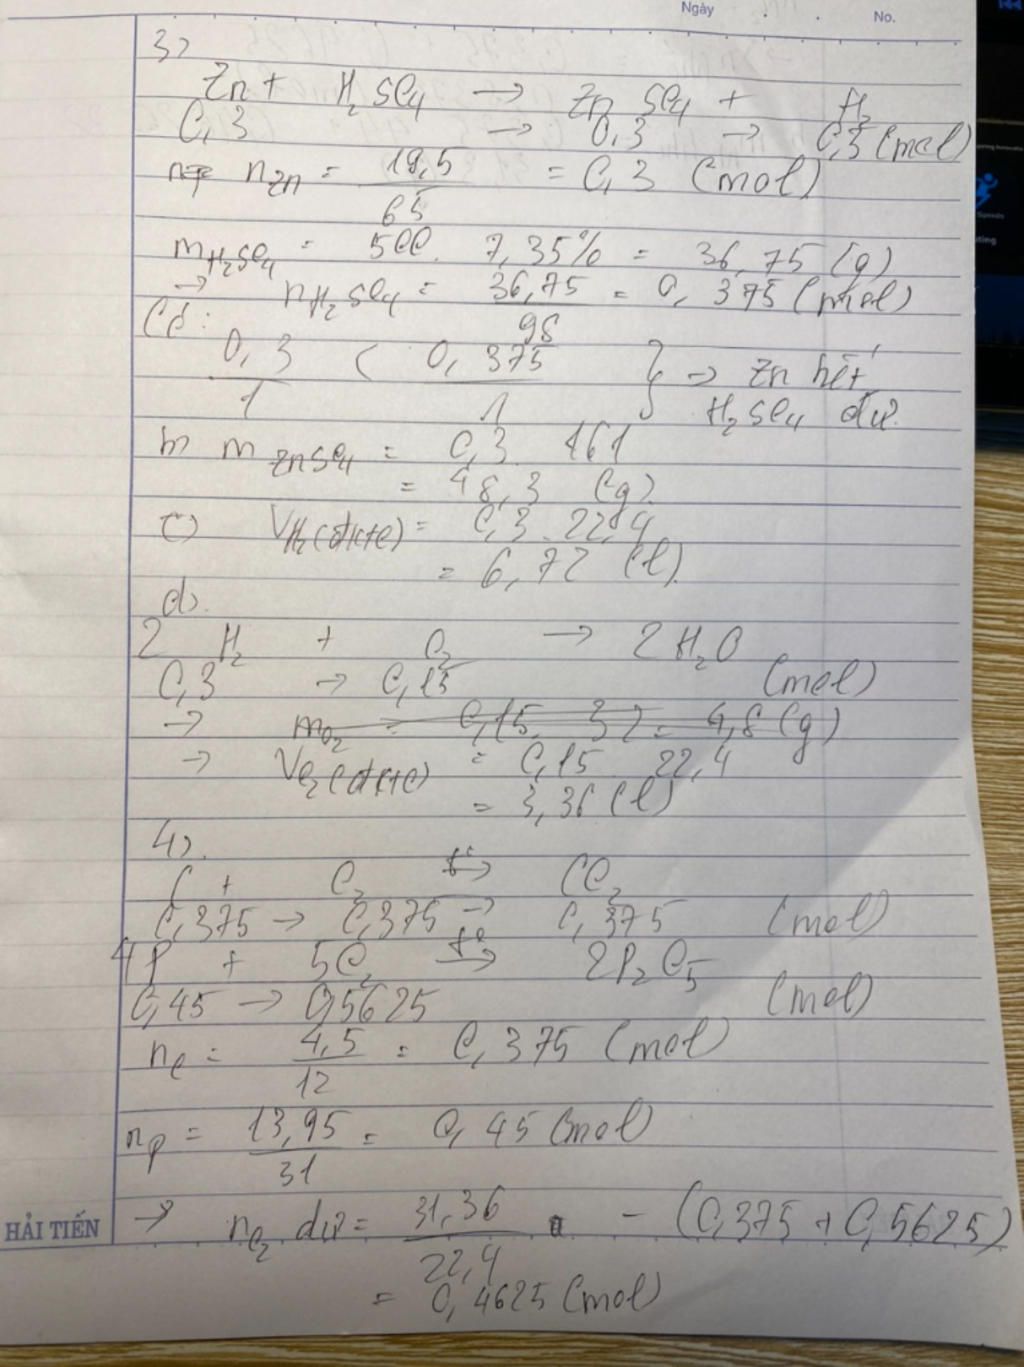 Ngày . . No.
3)
Zn + H₂SO₄ → ZnSO₄ + H₂
0,3 → 0,3 → 0,3 (mol)
nZn = 19,5/65 = 0,3 (mol)
mH₂SO₄ = 500. 7,35% = 36,75 (g)
→ nH₂SO₄ = 36,75/98 = 0,375 (mol)
Có:
0,3/1 < 0,375/1 } → Zn hết, H₂SO₄ dư.
b) mZnSO₄ = 0,3. 161
= 48,3 (g)
c) VH₂(đktc) = 0,3. 22,4
= 6,72 (l).
d).
2H₂ + O₂ → 2H₂O
0,3 → 0,15 (mol)
→ mO₂ = 0,15. 32 = 4,8 (g)
→ VO₂(đktc) = 0,15 22,4
= 3,36 (l)
4).
C + O₂ t°→ CO₂
0,375 → 0,375 → 0,375 (mol)
4P + 5O₂ t°→ 2P₂O₅
0,45 → 0,5625 (mol)
nC = 4,5/12 = 0,375 (mol)
nP = 13,95/31 = 0,45 (mol)
→ nO₂ dư = 31,36/22,4 - (0,375 + 0,5625)
= 0,4625 (mol)
HẢI TIẾN